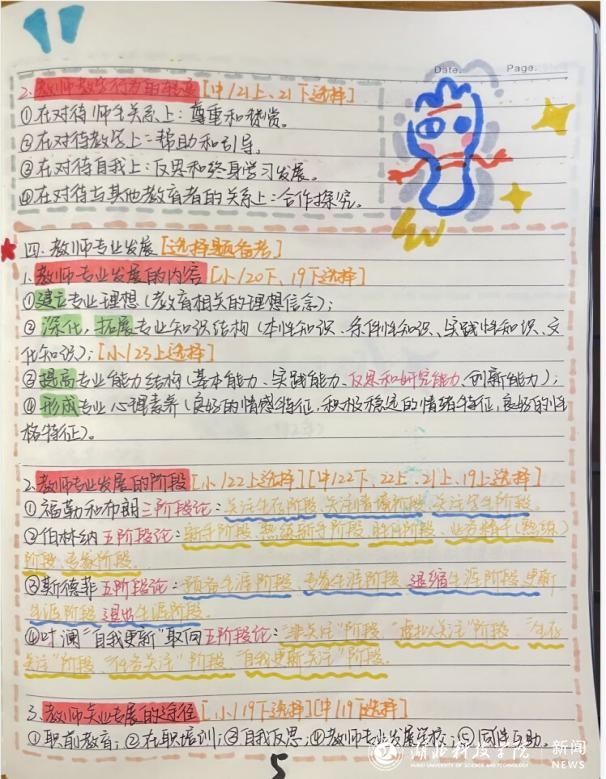 Date.  Page.
2.教师教学行为的转变[中/21上、21下选择]
①在对待师生关系上:尊重和赞赏。
②在对待教学上:帮助和引导。
③在对待自我上:反思和终身学习发展。
④在对待与其他教育者的关系上:合作探究。
四.教师专业发展[选择题备考]
1.教师专业发展的内容[小/20下、19下选择]
①建立专业理想(教育相关的理想信念);
②深化、拓展专业知识结构(本体性知识、条件性知识、实践性知识、文
化知识);[小/23上选择]
③提高专业能力结构(基本能力、实践能力、反思和研究能力、创新能力);
④形成专业心理素养(良好的情感特征,积极稳定的情绪特征,良好的性
格特征)。
2.教师专业发展的阶段[小/22上选择][中/22下、22上、21上、19上选择]
①福勒和布朗三阶段论:关注生存阶段、关注情境阶段、关注学生阶段。
②伯林纳五阶段论:新手阶段、熟练新手阶段、胜任阶段、业务精干(熟练)
阶段、专家阶段。
③斯德菲五阶段论:预备生涯阶段、专家生涯阶段、退缩生涯阶段、更新
生涯阶段、退出生涯阶段。
④叶澜"自我更新"取向五阶段论:"非关注"阶段、"虚拟关注"阶段、"生存
关注"阶段、"任务关注"阶段、"自我更新关注"阶段。
3.教师专业发展的途径[小/19下选择][中/19下选择]
①职前教育;②在职培训;③自我反思;④教师专业发展学校;⑤同伴互助。
湖北科技学院 新闻
HUBEI UNIVERSITY OF SCIENCE AND TECHNOLOGY NEWS
5